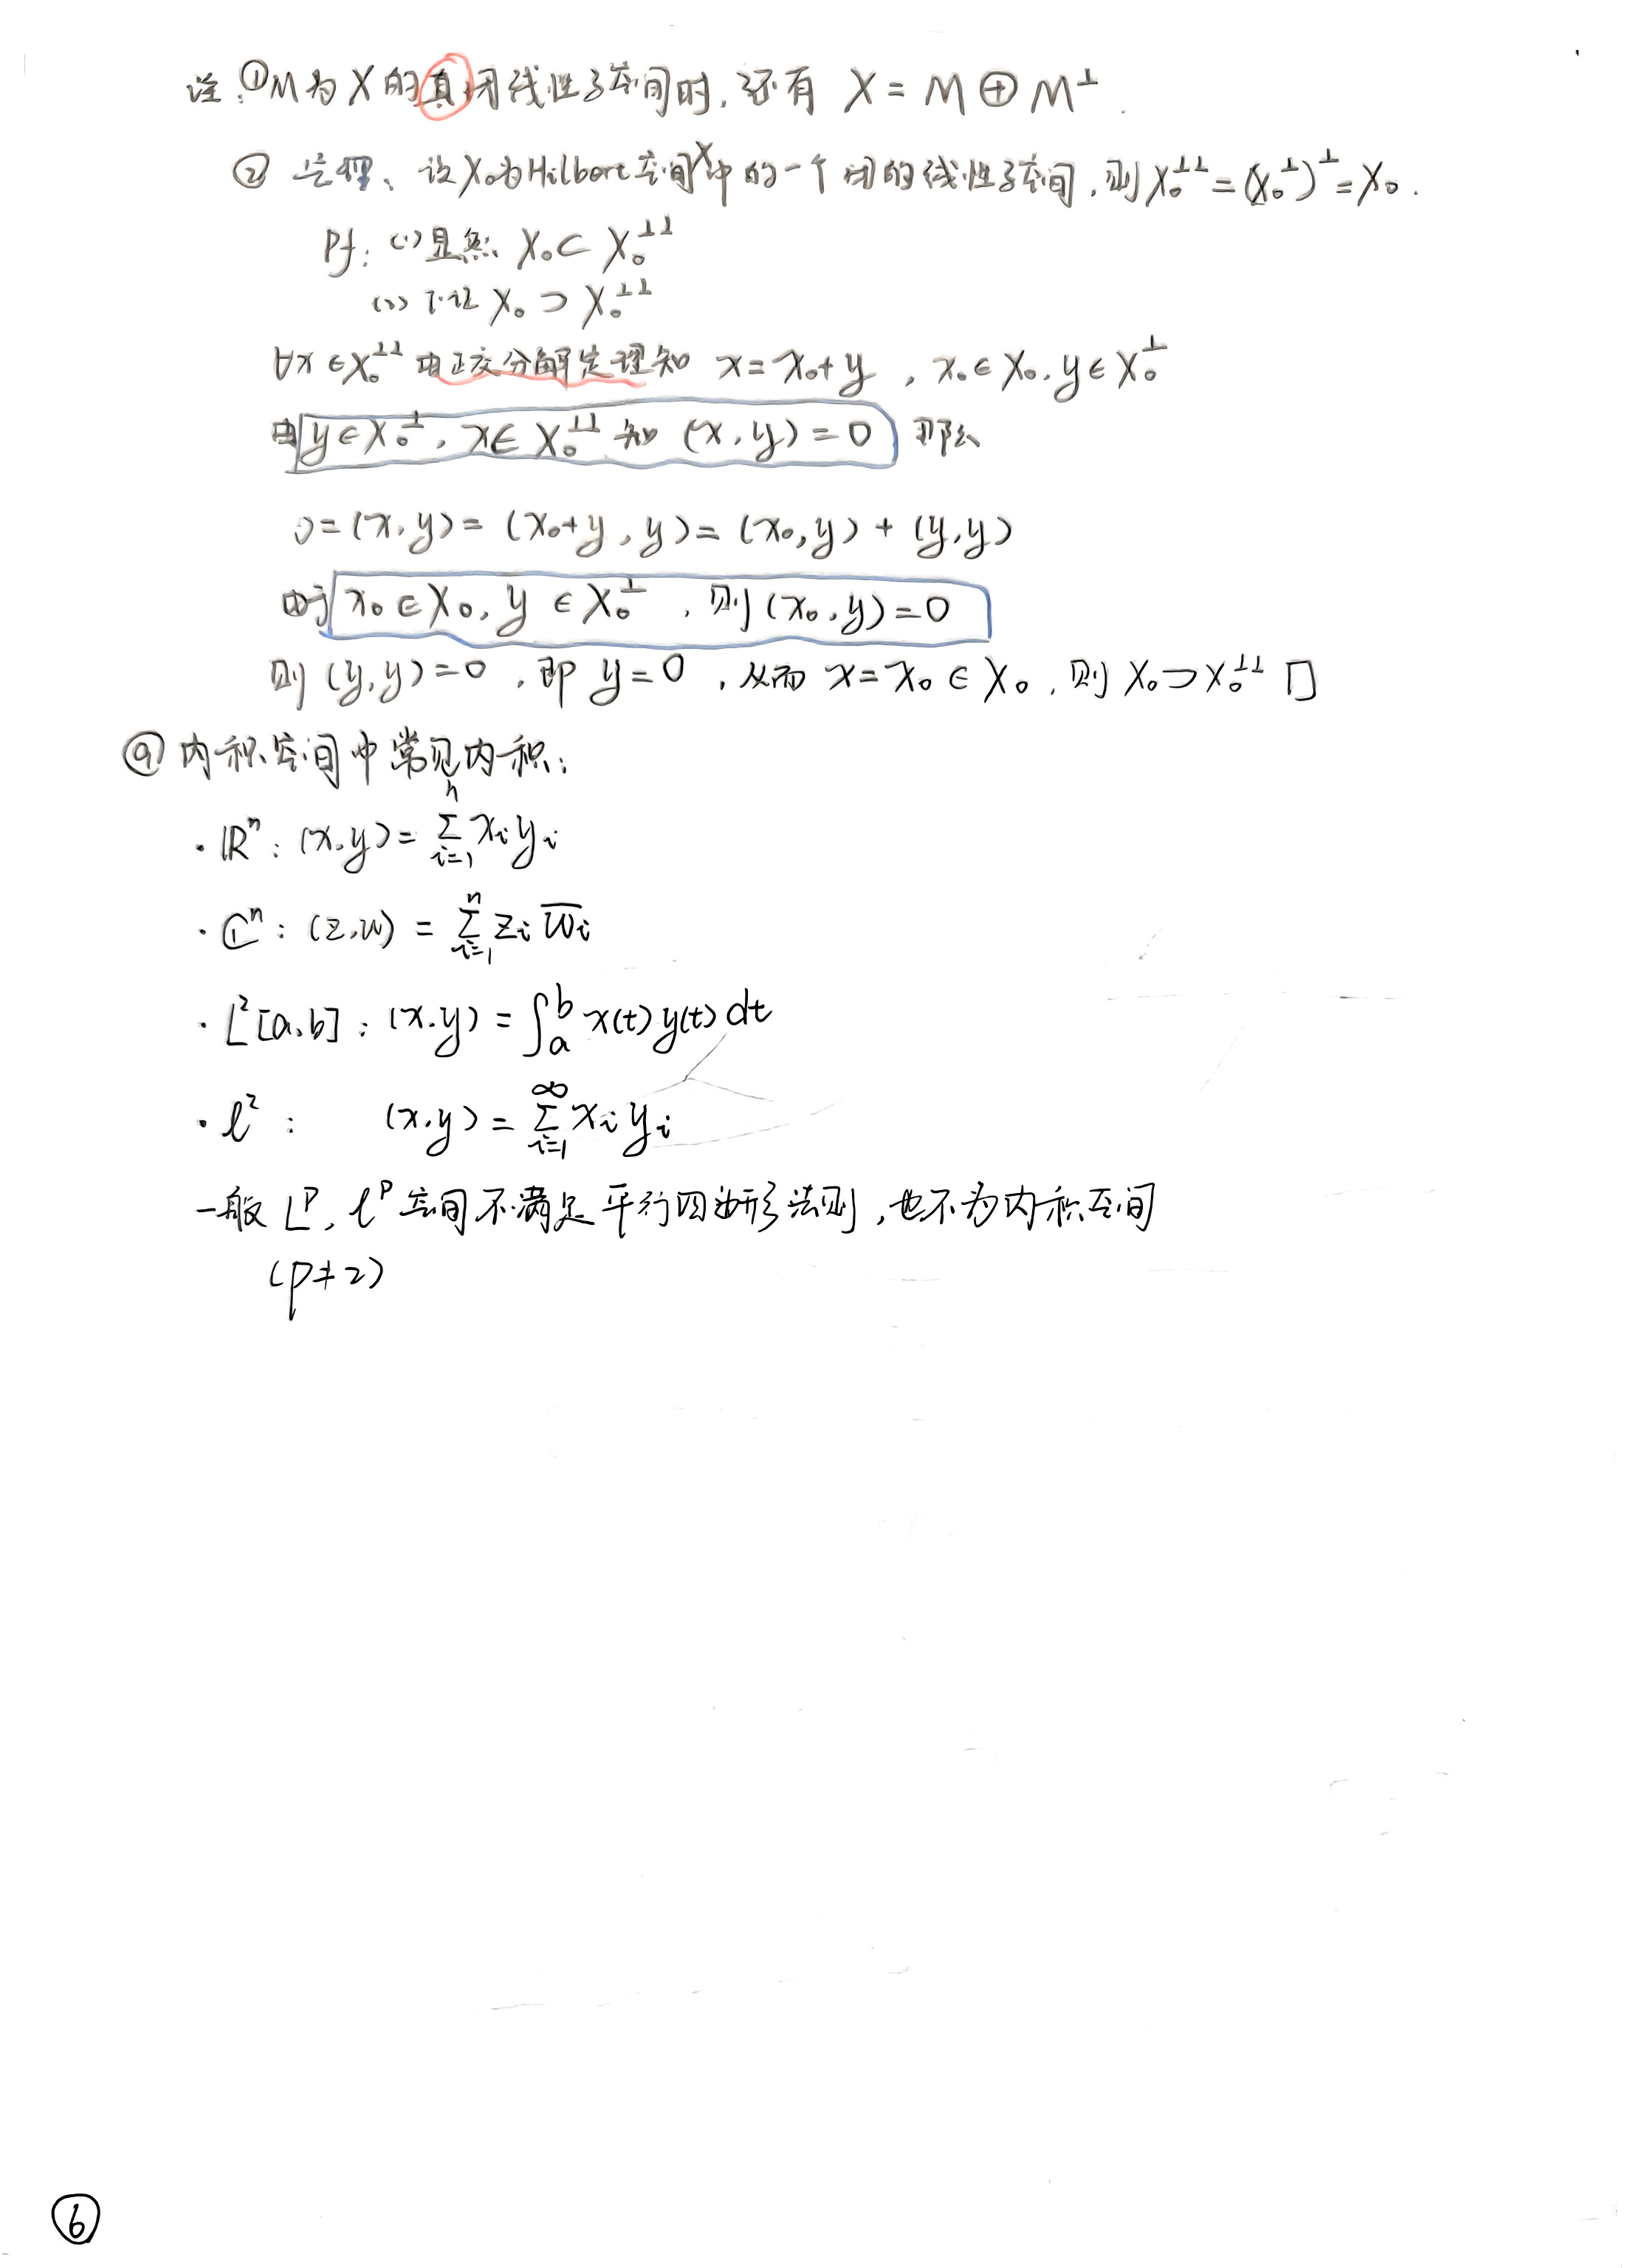 注:①M为X的真闭线性子空间时,还有 X=M⊕M^⊥.
② 定理、设X₀为Hilbert空间X中的一个闭的线性子空间,则X₀^⊥⊥=(X₀^⊥)^⊥=X₀.
Pf:(1)显然 X₀⊂X₀^⊥⊥
(2)下证 X₀⊃X₀^⊥⊥
∀x∈X₀^⊥⊥ 由正交分解定理知 x=x₀+y, x₀∈X₀,y∈X₀^⊥
由 y∈X₀^⊥,x∈X₀^⊥⊥ 知 (x,y)=0 那么
0=(x,y)=(x₀+y,y)=(x₀,y)+(y,y)
由于 x₀∈X₀,y∈X₀^⊥,则(x₀,y)=0
则 (y,y)=0,即 y=0,从而 x=x₀∈X₀,则 X₀⊃X₀^⊥⊥ □
⑨ 内积空间中常见内积:
·ℝⁿ:(x,y)=∑_{i=1}^{n} x_i y_i
·ℂⁿ:(z,w)=∑_{i=1}^{n} z_i \overline{w_i}
·L²[a,b]:(x,y)=∫_a^b x(t)y(t)dt
·ℓ²: (x,y)=∑_{i=1}^{∞} x_i y_i
一般 L^p,ℓ^p 空间不满足平行四边形法则,也不为内积空间
(p≠2)
⑥